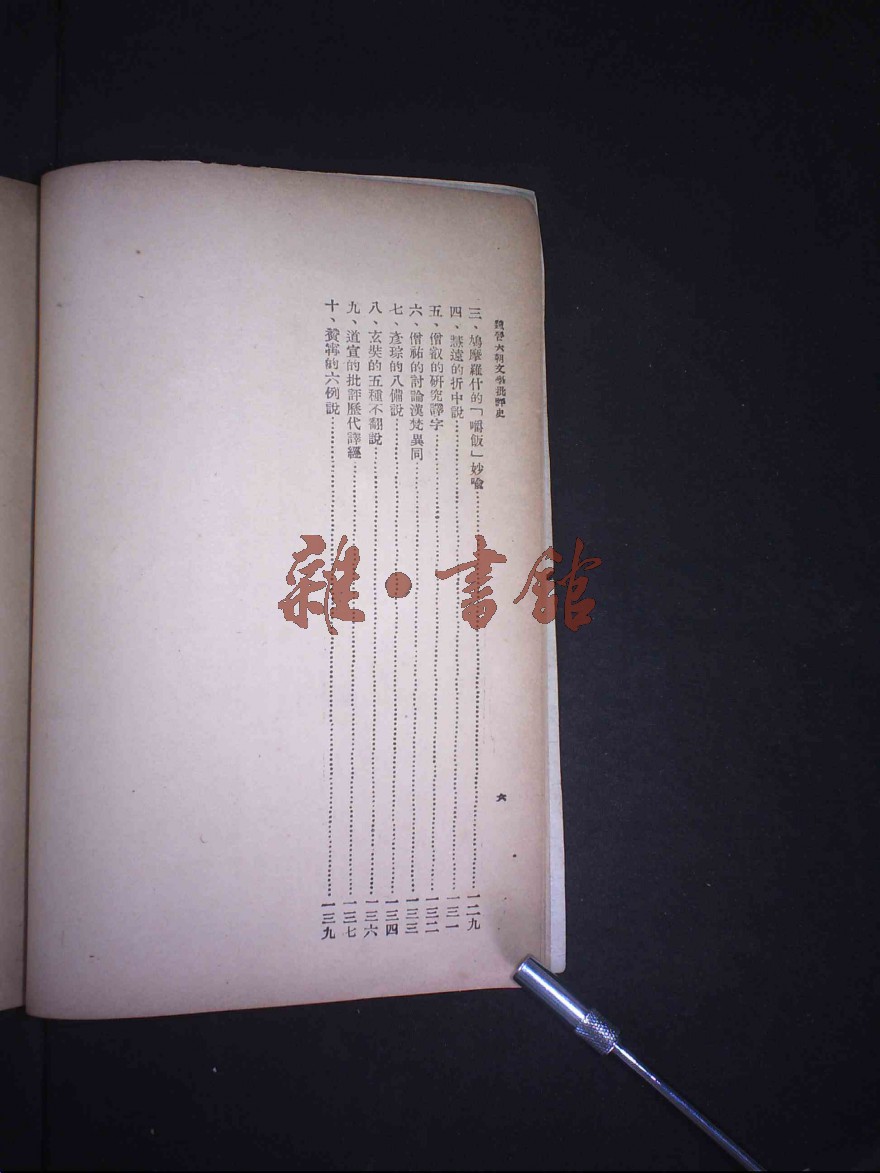 魏晉六朝文學批評史
六
三、鳩摩羅什的「嚼飯」妙喻……一二九
四、慧遠的折中說……一三一
五、僧叡的研究譯字……一三二
六、僧祐的討論漢梵異同……一三三
七、彥琮的八備說……一三四
八、玄奘的五種不翻說……一三六
九、道宣的批評歷代譯經……一三七
十、贊寧的六例說……一三九
雜·書館